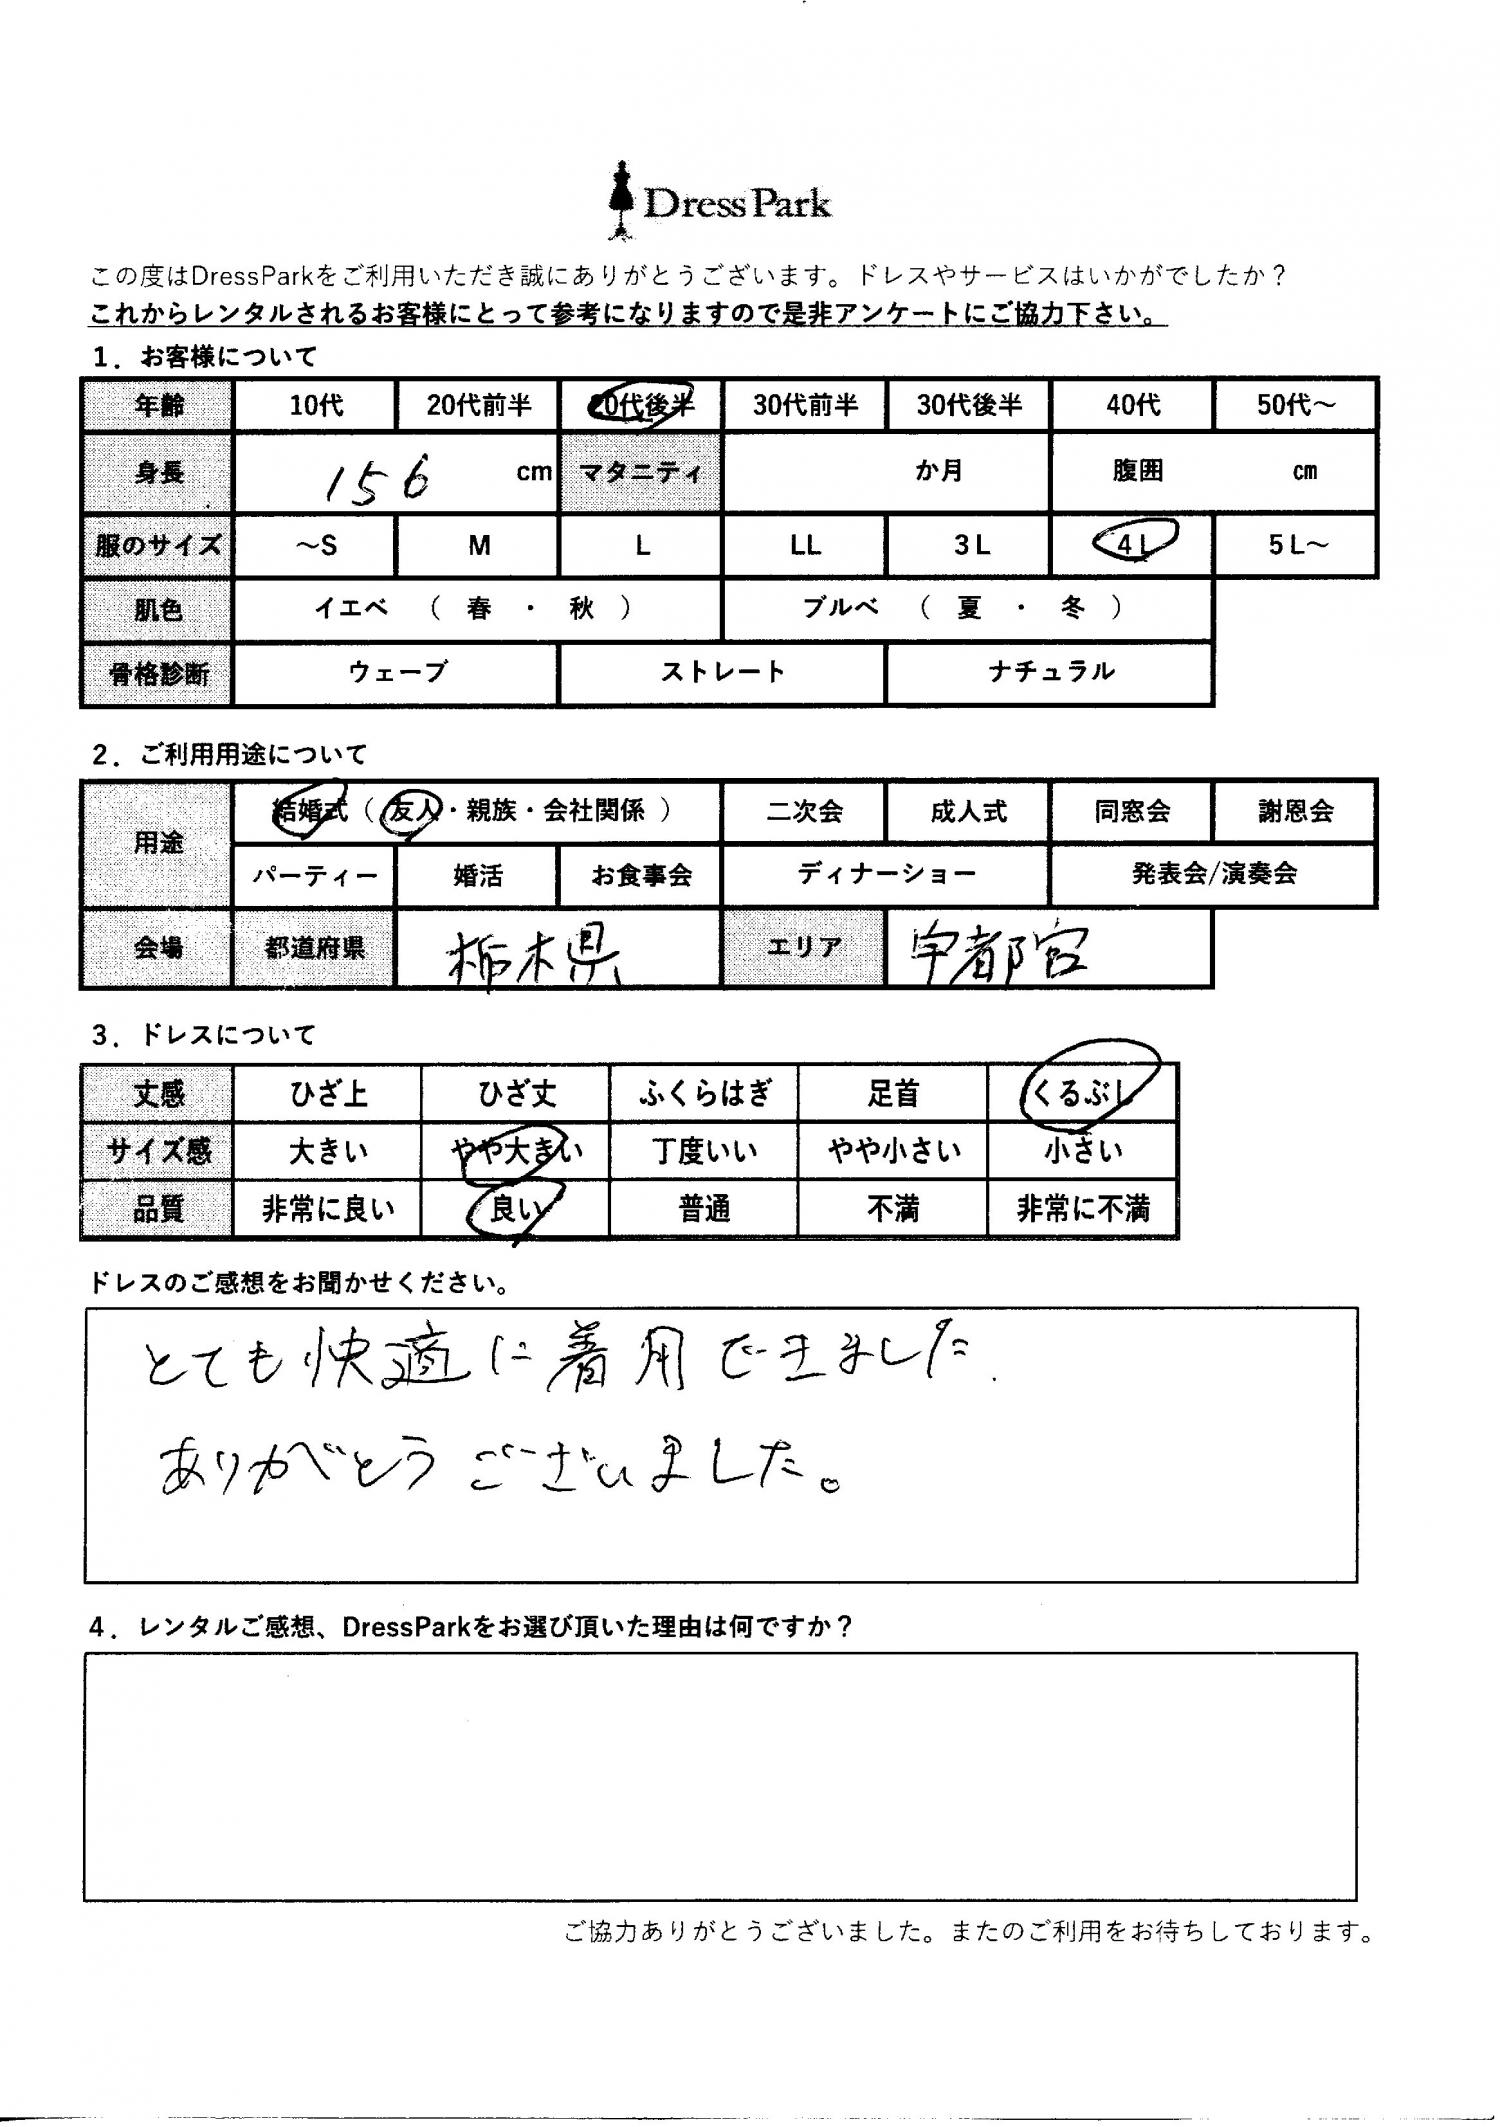 Dress Park
この度はDressParkをご利用いただき誠にありがとうございます。ドレスやサービスはいかがでしたか？
これからレンタルされるお客様にとって参考になりますので是非アンケートにご協力下さい。
1．お客様について
年齢 10代 20代前半 20代後半 30代前半 30代後半 40代 50代～
身長 156 cm マタニティ か月 腹囲 cm
服のサイズ ～S M L LL 3L 4L 5L～
肌色 イエベ （ 春 ・ 秋 ） ブルベ （ 夏 ・ 冬 ）
骨格診断 ウェーブ ストレート ナチュラル
2．ご利用用途について
用途 結婚式（ 友人・親族・会社関係 ） 二次会 成人式 同窓会 謝恩会
パーティー 婚活 お食事会 ディナーショー 発表会/演奏会
会場 都道府県 栃木県 エリア 宇都宮
3．ドレスについて
丈感 ひざ上 ひざ丈 ふくらはぎ 足首 くるぶし
サイズ感 大きい やや大きい 丁度いい やや小さい 小さい
品質 非常に良い 良い 普通 不満 非常に不満
ドレスのご感想をお聞かせください。
とても快適に着用できました.
ありがとうございました。
4．レンタルご感想、DressParkをお選び頂いた理由は何ですか？
ご協力ありがとうございました。またのご利用をお待ちしております。